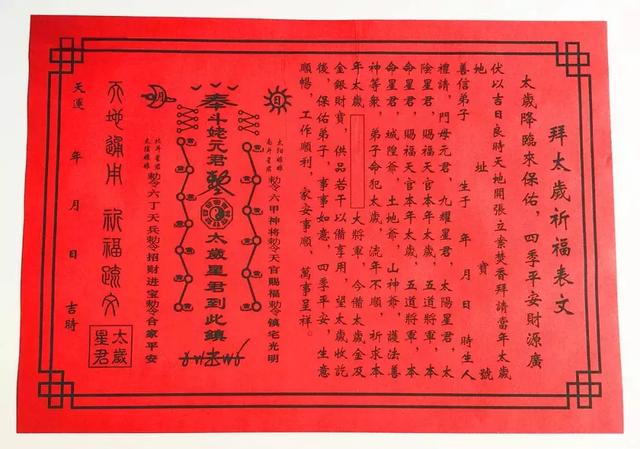 拜太歲祈福表文
太歲降臨來保佑，四季平安財源廣
伏以吉日良時天地開張立案焚香拜請當年太歲
地　址　寶　號
善信弟子　生于　年　月　日　時生人
禮請，門母元君，九耀星君，太陽星君，太
陰星君，賜福天官本年太歲，五道將軍，本
命星君，賜福天官本年太歲，五道將軍，本
命星君，城隍爺，土地爺，山神爺，護法善
神等衆，弟子命犯太歲，流年不順，祈求本
年太歲　大將軍，今備太歲金及
金銀財寶，供品若干以備享用，望太歲收訖
後，保佑弟子，事事如意，四季平安，生意
順暢，工作順利，家安事順，萬事呈祥。
日
太陽娘娘
南斗星君
勅令六甲神将勅令天官賜福勅令鎮宅光明
奉斗姥元君
太歲星君到此鎮
月
北斗星君
太陰娘娘
勅令六丁天兵勅令招財进宝勅令合家平安
天地通用　祈福疏文
太歲
星君
天運　年　月　日　吉時